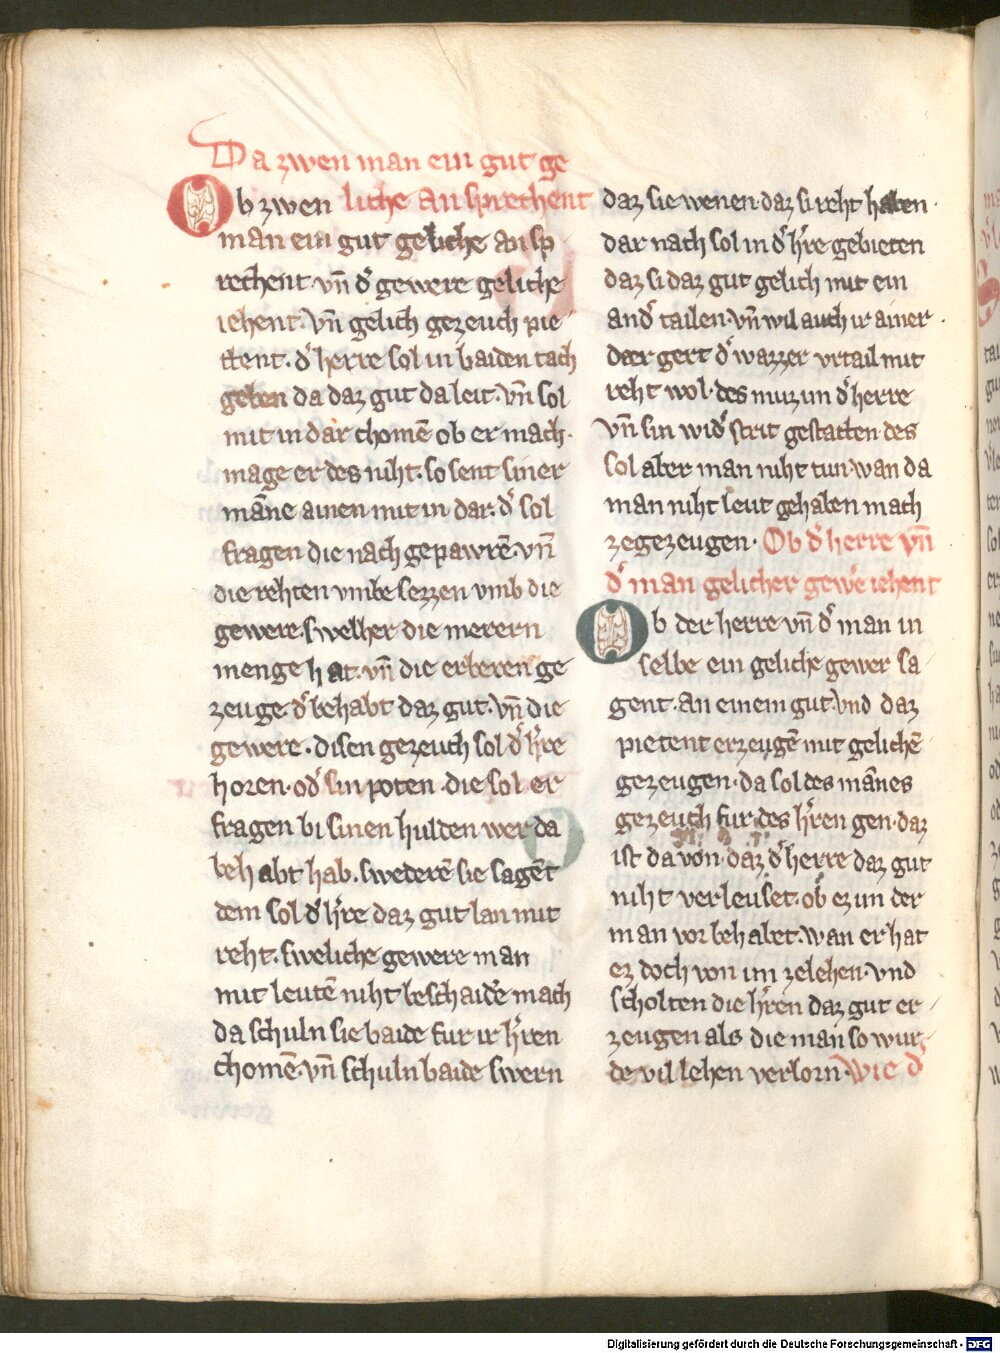 Da zwen man ein gut ge
liche an sprechent
Ob zwen
man ein gut geliche an sp
rechent. vn̄ d͛ gewere geliche
iehent. vn̄ gelich gezeuch pie
ttent. d͛ herre sol in baiden tach
geben da daz gut da leit. vn̄ sol
mit in dar chomē ob er mach.
mage er des niht. so sent siner
māne ainen mit in dar. d͛ sol
fragen die nach gepawrē. vn̄
die rehten vmbe sezzen vmb die
gewere. swelher die merern
menge hat. vn̄ die erberen ge
zeuge. d͛ behabt daz gut. vn̄ die
gewere. disen gezeuch sol d͛ h͛re
horen. od͛ sin poten. die sol er
fragen bi sinen hulden wer da
beh abt hab. swederē sie sagēt
dem sol d͛ h͛re daz gut lan mit
reht. sweliche gewere man
mit leutē niht beschaidē mach
da schuln sie baide fur ir h͛ren
chomē. vn̄ schuln baide swern
daz sie wenen daz si reht haben.
dar nach sol in d͛ h͛re gebieten
daz si daz gut gelich mit ein
and͛ tailen. vn̄ wil auch ir ainer.
dar gert d͛ wazzer vrtail mit
reht wol. des muz im d͛ herre
vn̄ sin wid͛ strit gestatten des
sol aber man niht tun. wan da
man niht leut gehaben mach
zegezeugen. Ob d͛ herre vn̄
d͛ man gelicher gewe͛ iehent
Ob der herre vn̄ d͛ man in
selbe ein geliche gewer sa
gent. an einem gut. vnd daz
pietent erzeugē mit gelichē
gezeugen. da sol des mānes
gezeuch fur des h͛ren gen. daz
ist da von. daz d͛ herre daz gut
niht verleuset. ob ez im der
man vor behabet. wan er hat
ez doch von im zelehen. vnd
scholten die h͛ren daz gut er
zeugen als die man so wur
de vil lehen verlorn. Wie d͛
Digitalisierung gefördert durch die Deutsche Forschungsgemeinschaft - DFG